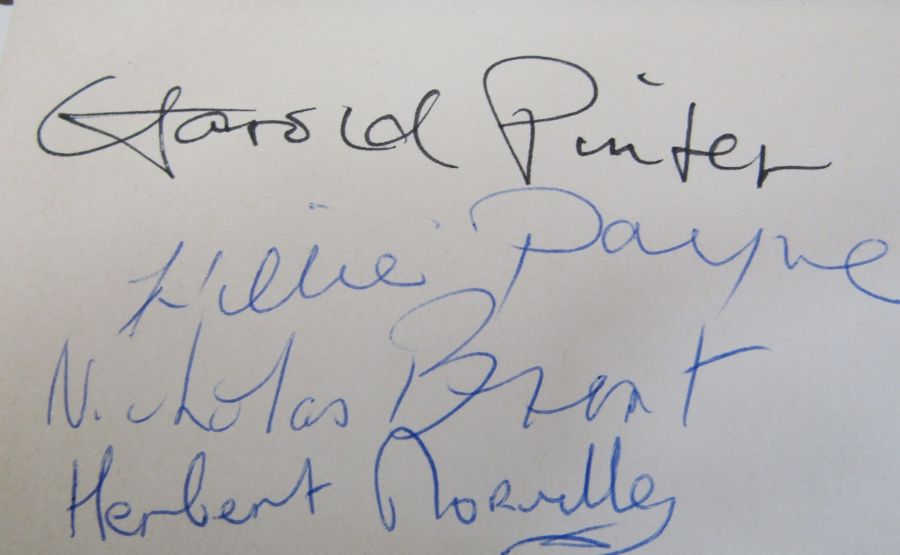 Harold Pinter
Lillie Payne
Nicholas Brent
Herbert